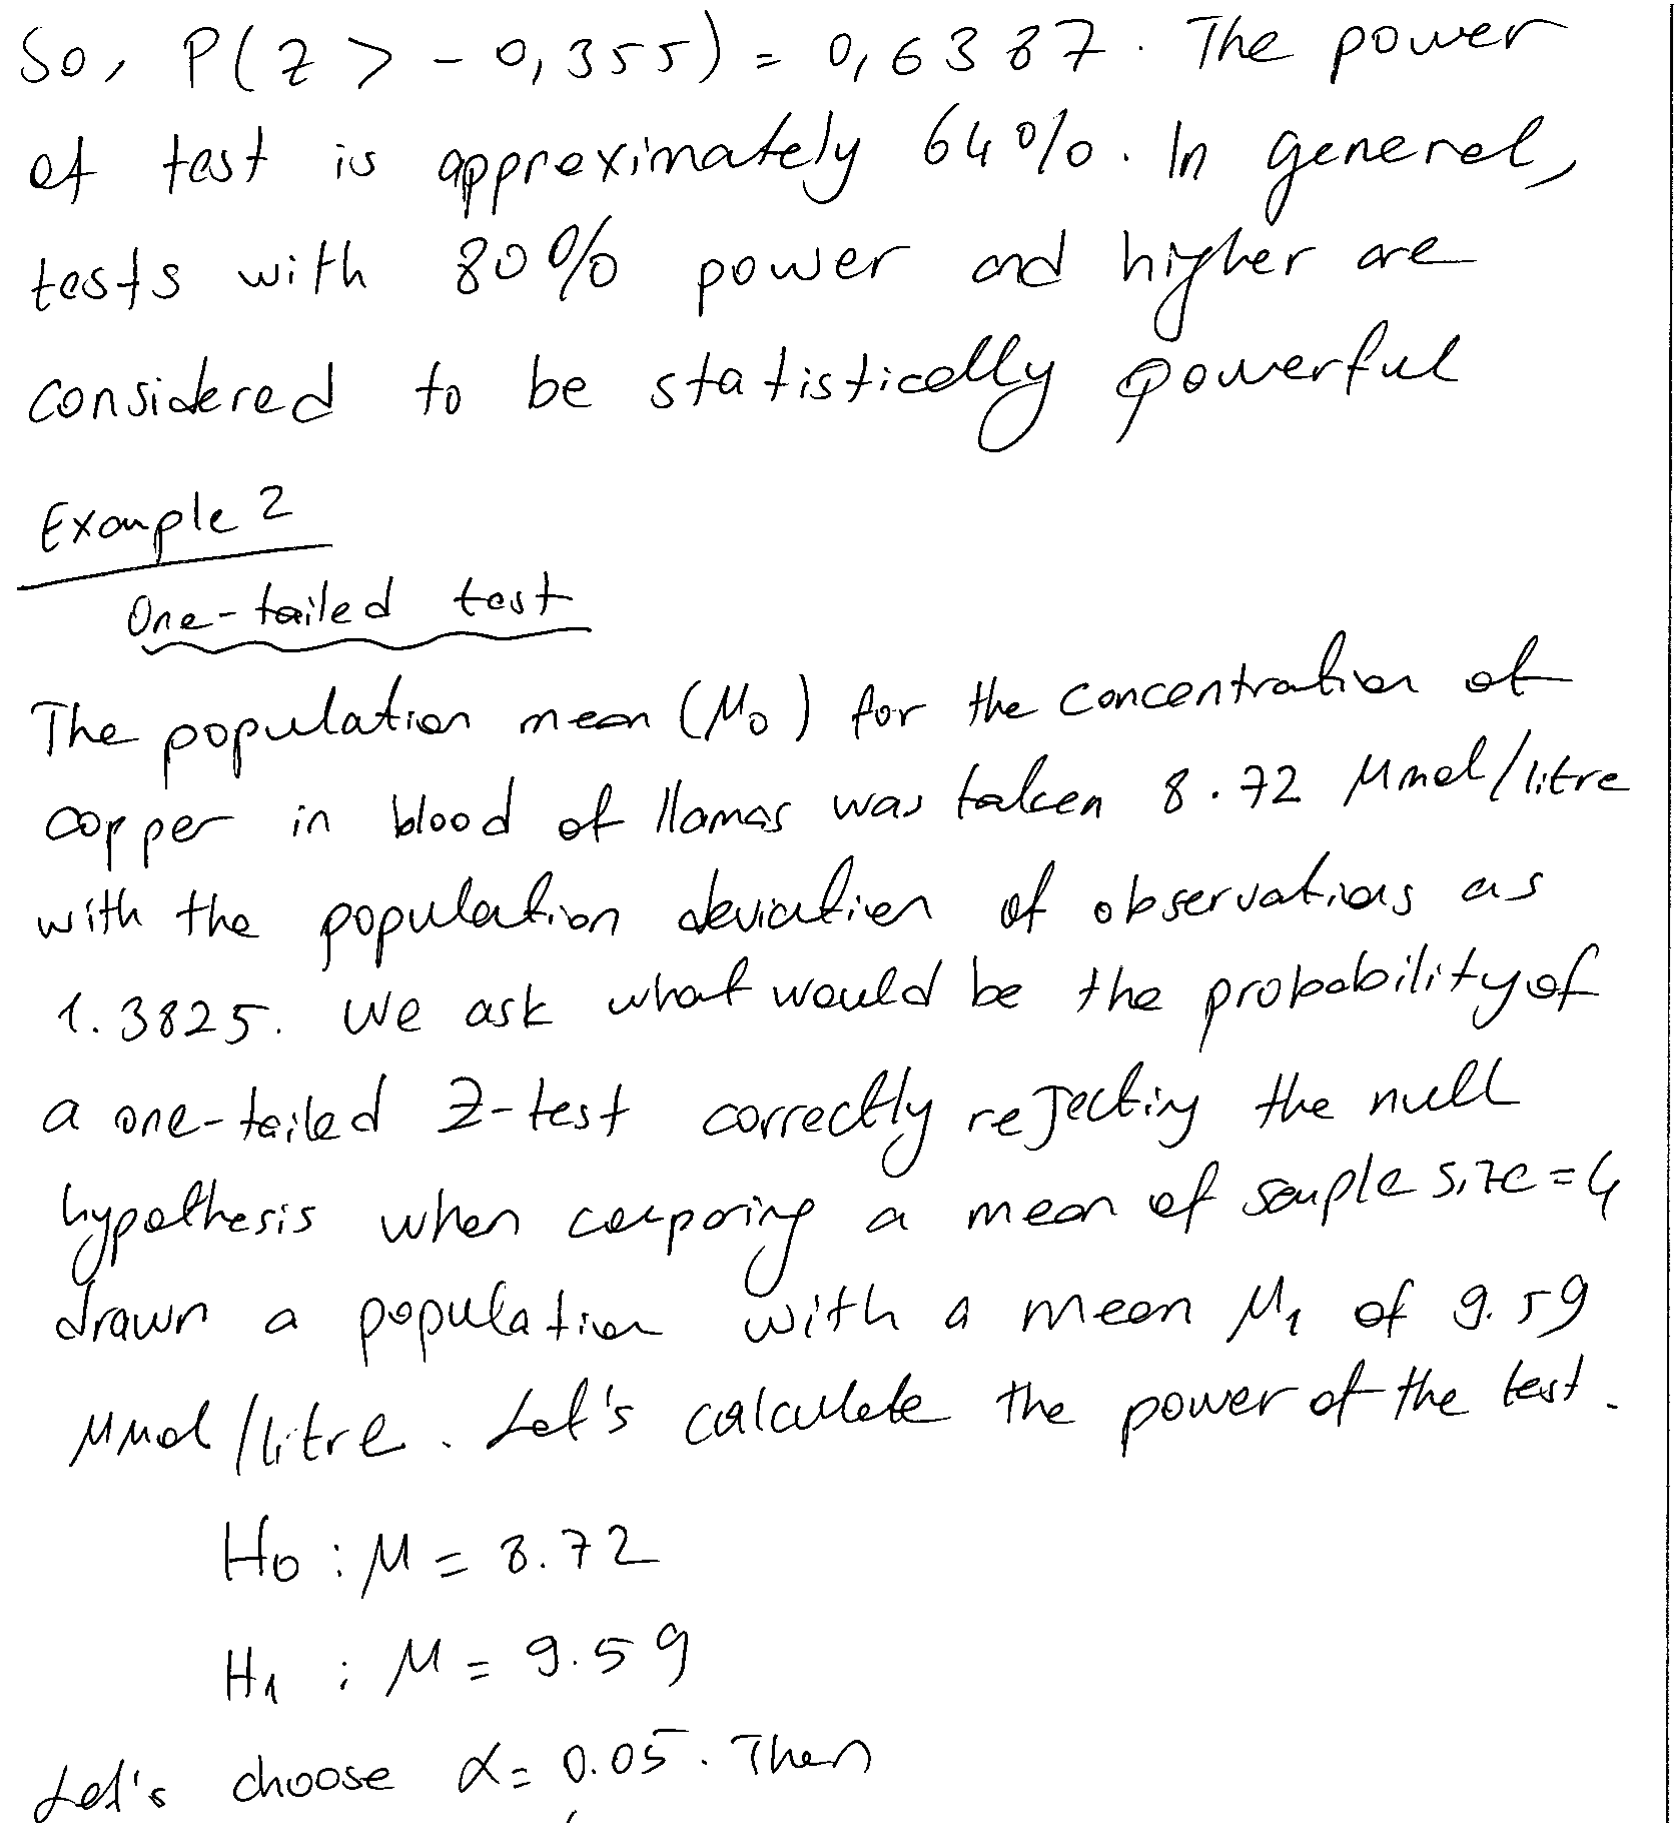 So, P(Z > -0,355) = 0,6387. The power
of test is approximately 64%. In general,
tests with 80% power and higher are
considered to be statistically powerful
Example 2
One-tailed test
The population mean (μ₀) for the concentration of
copper in blood of llamas was taken 8.72 μmol/litre
with the population deviation of observations as
1.3825. We ask what would be the probability of
a one-tailed Z-test correctly rejecting the null
hypothesis when comparing a mean of sample size = 4
drawn a population with a mean μ₁ of 9.59
μmol/litre. Let's calculate the power of the test.
H₀ : μ = 8.72
H₁ : μ = 9.59
Let's choose α = 0.05. Then